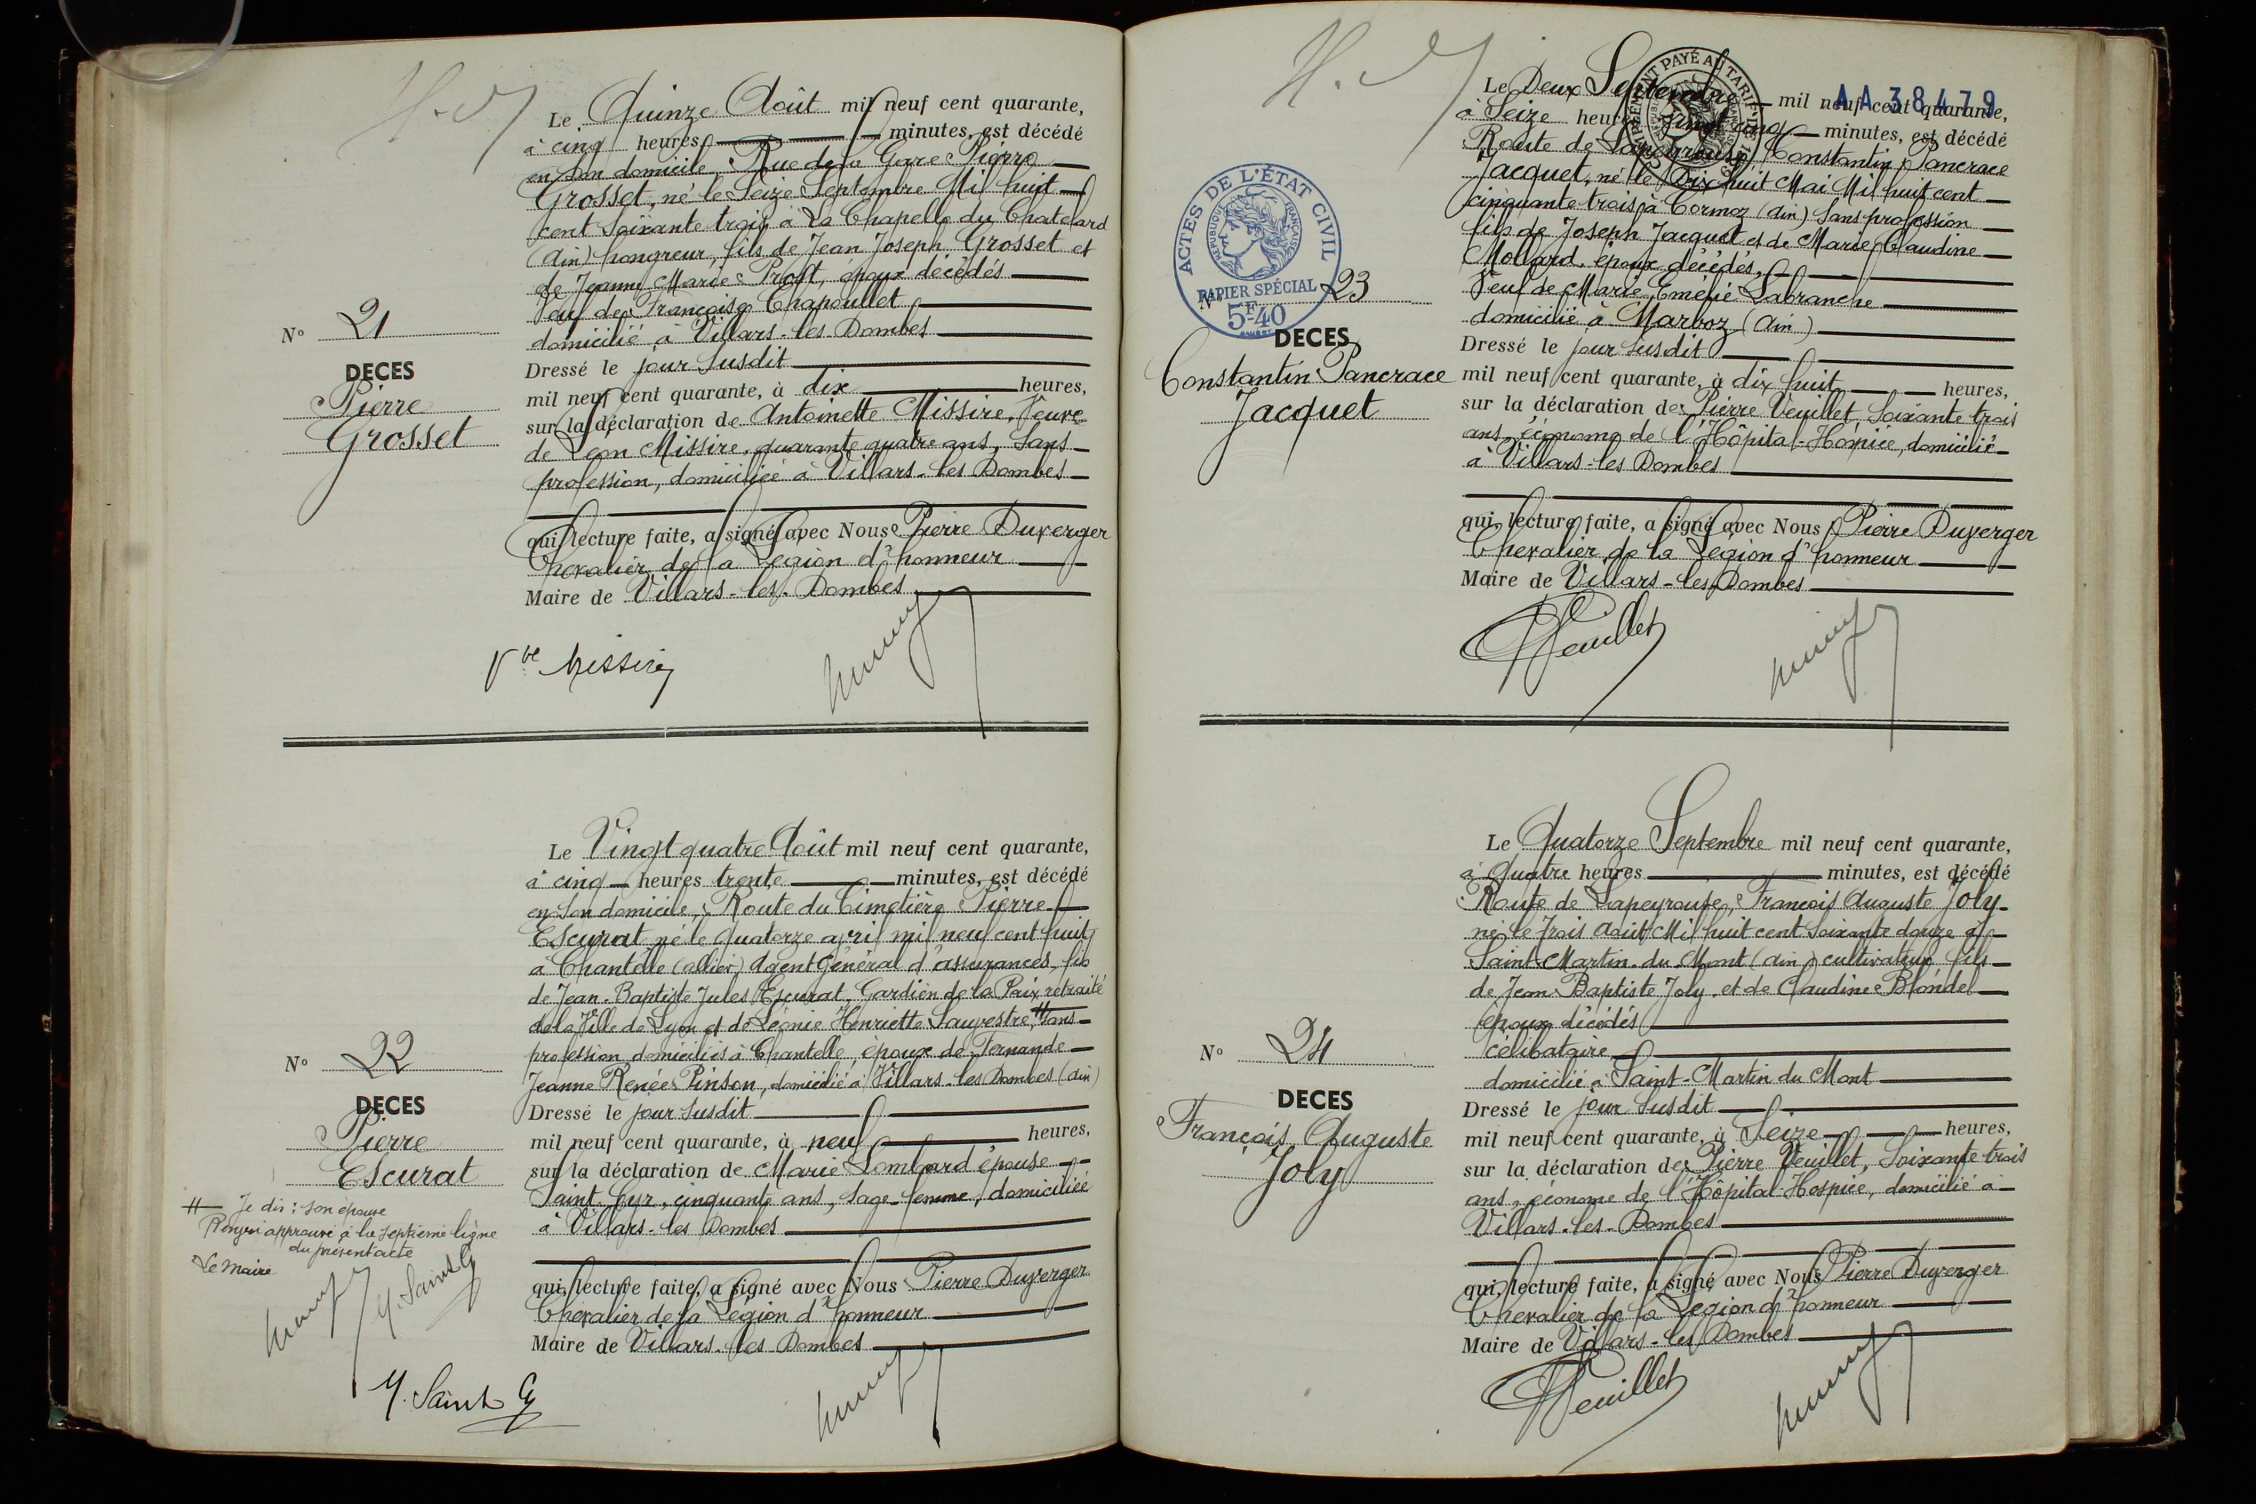 H.
Le Quinze Août mil neuf cent quarante,
à cinq heures minutes, est décédé
en son domicile, Rue de la Gare Pierre
Grosset, né le Seize Septembre Mil huit
cent soixante trois à La Chapelle du Chatelard
(Ain) hongreur, fils de Jean Joseph Grosset et
de Jeanne Marie Prost, époux décédés
Veuf de Françoise Chapoullet
domicilié à Villars-les Dombes
Dressé le jour susdit
mil neuf cent quarante, à dix heures,
sur la déclaration de Antoinette Missire, Veuve
de Léon Missire, quarante quatre ans, sans
profession, domiciliée à Villars-les Dombes
qui, lecture faite, a signé avec Nous Pierre Duverger
Chevalier de la Légion d'honneur
Maire de Villars-les-Dombes
Nº 21
DECES
Pierre
Grosset
Vve Missire
Le Vingt quatre Août mil neuf cent quarante,
à cinq heures trente minutes, est décédé
en son domicile, Route du Cimetière Pierre
Escurat né le quatorze avril mil neuf cent huit
à Chantelle (Allier) Agent Général d'assurances, fils
de Jean-Baptiste Jules Escurat, Gardien de la Paix retraité
de la Ville de Lyon et de Léonie Henriette Sauvestre, # sans
profession, domiciliés à Chantelle, époux de Fernande
Jeanne Renée Pinson, domicilié à Villars-les Dombes (Ain)
Dressé le jour susdit
mil neuf cent quarante, à neuf heures,
sur la déclaration de Marie Lombard épouse
Saint Cyr, cinquante ans, sage-femme, domiciliée
à Villars-les Dombes
qui, lecture faite, a signé avec Nous Pierre Duverger
Chevalier de la Légion d'honneur
Maire de Villars-les Dombes
Nº 22
DECES
Pierre
Escurat
# Je dis : son épouse
Renvoi approuvé à la septième ligne
du présent acte
Le Maire
M. Saint Cyr
M. Saint Cyr
H.
AA 38479
Le Deux Septembre mil neuf cent quarante,
à Seize heures cinq minutes, est décédé
Route de Lapeyrouse, Constantin Pancrace
Jacquet, né le Dix huit Mai Mil huit cent
cinquante trois à Cormoz (Ain) sans profession
fils de Joseph Jacquet et de Marie Claudine
Mollard, époux décédés,
Veuf de Marie Emélie Labranche
domicilié à Marboz (Ain)
Dressé le jour susdit
mil neuf cent quarante, à dix huit heures,
sur la déclaration de Pierre Veuillet, soixante trois
ans, économe de l'Hôpital-Hospice, domicilié
à Villars-les Dombes
qui, lecture faite, a signé avec Nous Pierre Duverger
Chevalier de la Légion d'honneur
Maire de Villars-les-Dombes
ACTES DE L'ÉTAT CIVIL
RÉPUBLIQUE FRANÇAISE
PAPIER SPÉCIAL
5F40
Nº 23
DECES
Constantin Pancrace
Jacquet
Veuillet
Le Quatorze Septembre mil neuf cent quarante,
à quatre heures minutes, est décédé
Route de Lapeyrouse, François Auguste Joly
né le Trois Août Mil huit cent soixante douze à
Saint-Martin-du-Mont (Ain) cultivateur fils
de Jean Baptiste Joly et de Claudine Blondel
époux décédés
célibataire
domicilié à Saint-Martin du Mont
Dressé le jour susdit
mil neuf cent quarante, à Seize heures,
sur la déclaration de Pierre Veuillet, soixante trois
ans, économe de l'Hôpital-Hospice, domicilié à
Villars-les-Dombes
qui, lecture faite, a signé avec Nous Pierre Duverger
Chevalier de la Légion d'honneur
Maire de Villars-les Dombes
Nº 24
DECES
François Auguste
Joly
Veuillet